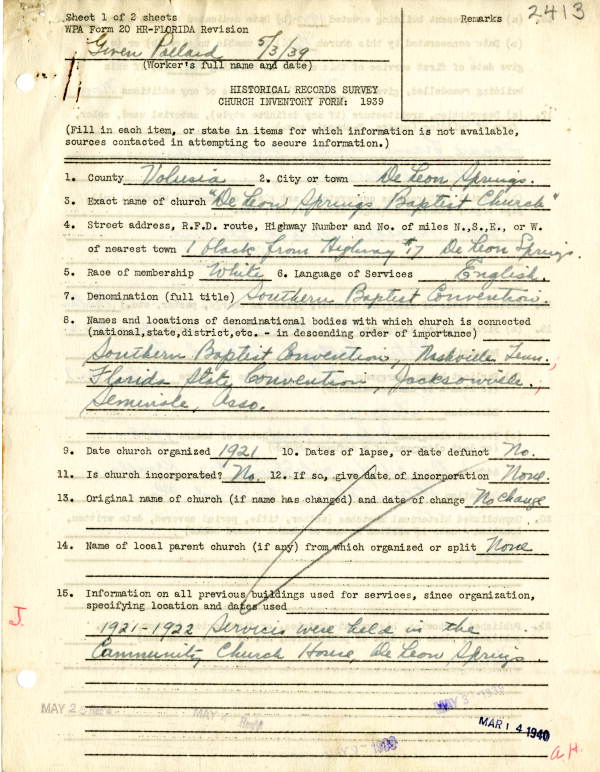 Sheet 1 of 2 sheets
Remarks 2413
WPA Form 20 HR-FLORIDA Revision
Gwen Pollard 5/3/39
(Worker's full name and date)
HISTORICAL RECORDS SURVEY
CHURCH INVENTORY FORM: 1939
(Fill in each item, or state in items for which information is not available,
sources contacted in attempting to secure information.)
1. County Volusia 2. City or town De Leon Springs.
3. Exact name of church "De Leon Springs Baptist Church"
4. Street address, R.F.D. route, Highway Number and No. of miles N.,S.,E., or W.
of nearest town 1 block from Highway #17 De Leon Springs.
5. Race of membership White 6. Language of Services English.
7. Denomination (full title) Southern Baptist Convention.
8. Names and locations of denominational bodies with which church is connected
(national,state,district,etc. - in descending order of importance)
Southern Baptist Convention, Nashville Tenn.,
Florida State Convention, Jacksonville,
Seminole, Asso.
9. Date church organized 1921 10. Dates of lapse, or date defunct No.
11. Is church incorporated? No. 12. If so, give date of incorporation None.
13. Original name of church (if name has changed) and date of change No change
14. Name of local parent church (if any) from which organized or split None
15. Information on all previous buildings used for services, since organization,
specifying location and dates used
J.
1921-1922 Services were held in the
Community Church House, De Leon Springs.
MAY 2
MAY
MAY 3 1939
MAR 14 1940
1939
A.H.